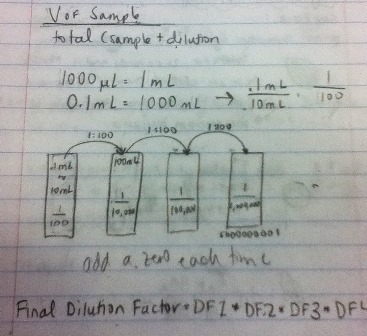 V of Sample
total (sample + dilution
1000 µL = 1 mL
0.1mL = 1000 mL → .1mL / 10mL = 1/100
1:100 1:100
.1mL 100mL
10mL
1/100 1/10,000 1/100,000
add a zero each time
Final Dilution Factor = DF1 * DF2 * DF3 * DF4